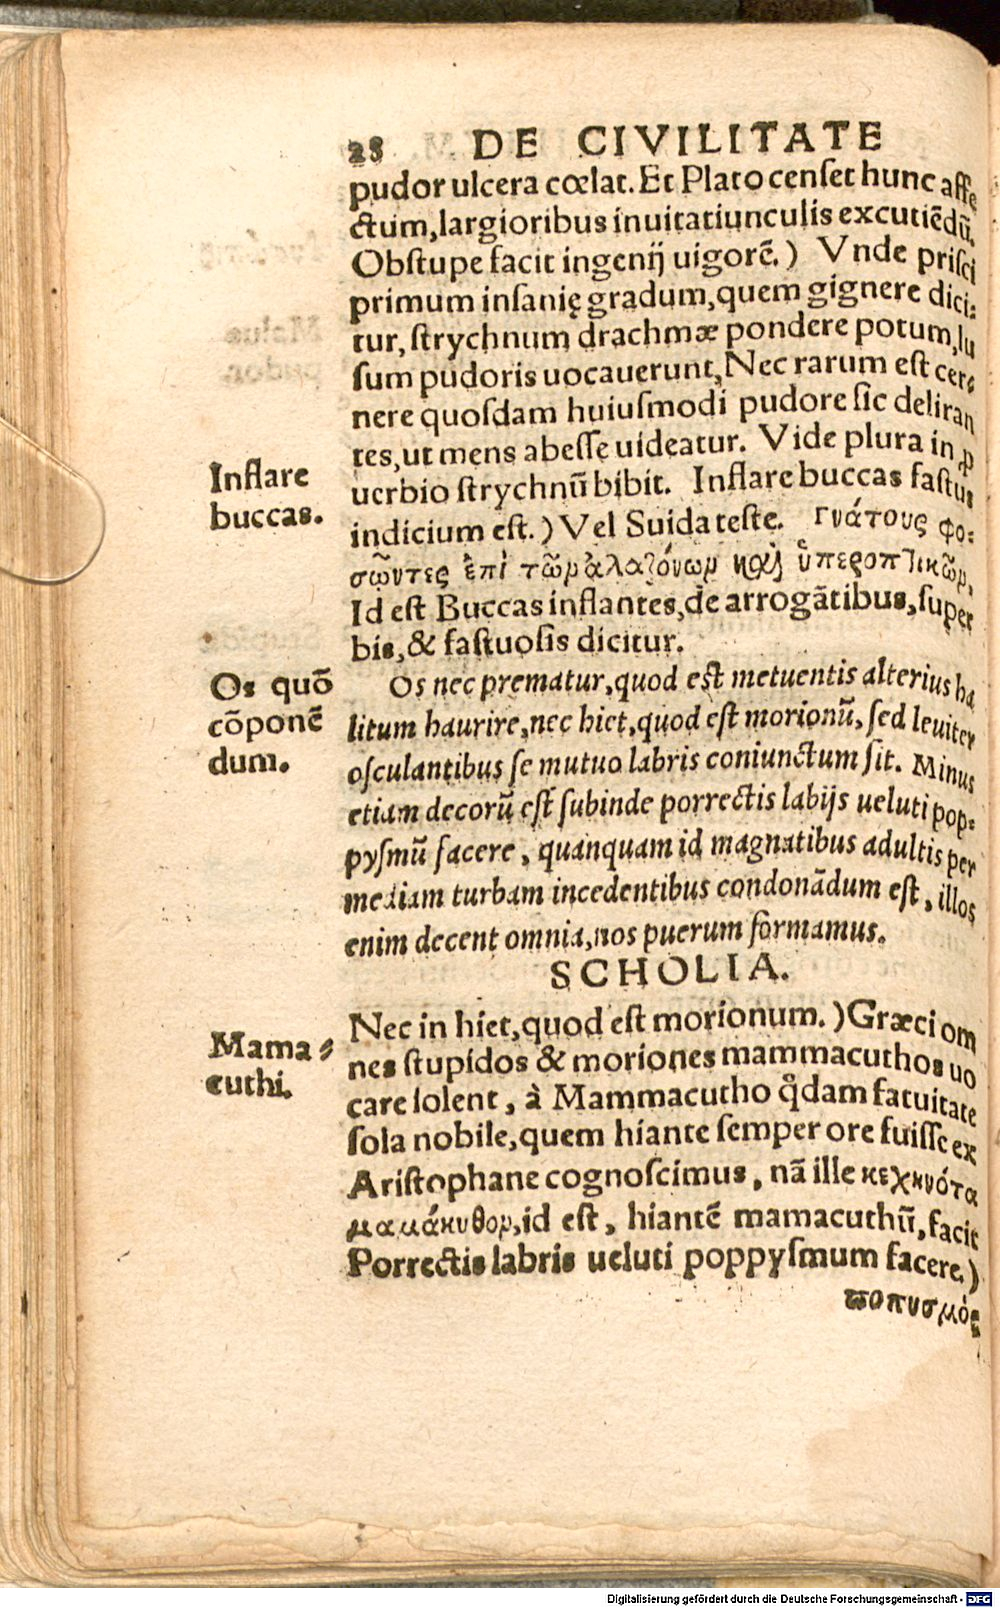 28 DE CIVILITATE
pudor ulcera cœlat. Et Plato censet hunc affe
ctum, largioribus inuitatiunculis excutiēdū.
Obstupe facit ingenij uigorē.) Vnde prisci
primum insanię gradum, quem gignere dici⸗
tur, strychnum drachmæ pondere potum, lu
sum pudoris uocauerunt, Nec rarum est cer⸗
nere quosdam huiusmodi pudore sic deliran
tes, ut mens abesse uideatur. Vide plura in ꝓ
uerbio strychnū bibit. Inflare buccas fastus
Inflare
buccas.
indicium est.) Vel Suida teste. γνάτους φο⸗
σῶντες ἐπὶ τῶν ἀλαζόνων καὶ ὑπεροπτικῶν,
Id est Buccas inflantes, de arrogātibus, super
bis, & fastuosis dicitur.
Os quō
cōponē
dum.
Os nec prematur, quod est metuentis alterius ha
litum haurire, nec hiet, quod est morionū, sed leuiter
osculantibus se mutuo labris coniunctum sit. Minus
etiam decorū est subinde porrectis labijs ueluti pop⸗
pysmū facere, quanquam id magnatibus adultis per
mediam turbam incedentibus condonādum est, illos
enim decent omnia, nos puerum formamus.
SCHOLIA.
Nec in hiet, quod est morionum.) Græci om
Mama⸗
cuthi.
nes stupidos & moriones mammacuthos uo
care solent, à Mammacutho q̊dam fatuitate
sola nobile, quem hiante semper ore fuisse ex
Aristophane cognoscimus, nā ille κεχηνότα
μαμάκυθον, id est, hiantē mamacuthū, facit
Porrectis labris ueluti poppysmum facere.)
ποπυσμὸς
Digitalisierung gefördert durch die Deutsche Forschungsgemeinschaft - DFG